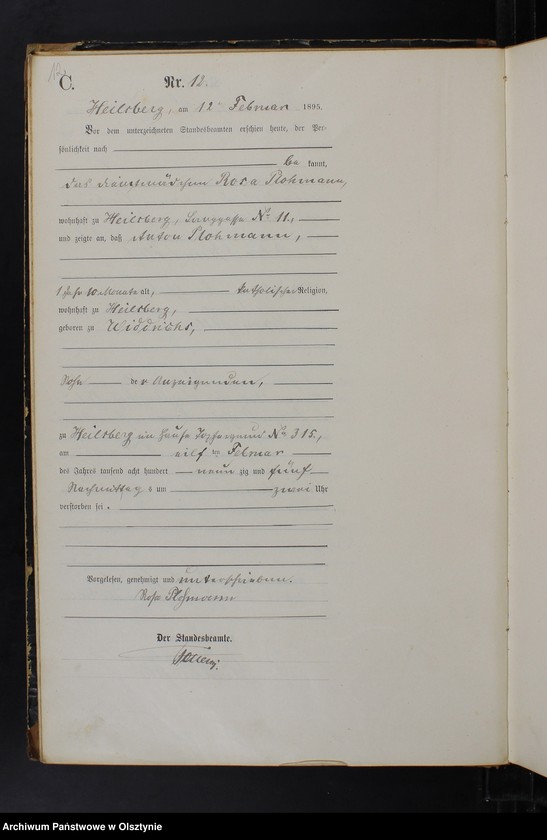 C.
Nr. 12.
Heilsberg, am 12 Februar 1895.
Vor dem unterzeichneten Standesbeamten erschien heute, der Per-
sönlichkeit nach
be kannt,
das Dienstmädchen Rosa Plohmann,
wohnhaft zu Heilsberg, Langgasse No 11,
und zeigte an, daß Anton Plohmann,
1 Jahr 10 Monate alt, katholischer Religion,
wohnhaft zu Heilsberg,
geboren zu Widdrichs,
Sohn der Anzeigenden,
zu Heilsberg im Hause No 315,
am eilf ten Februar
des Jahres tausend acht hundert neun zig und fünf
Nachmittag s um zwei Uhr
verstorben sei.
Vorgelesen, genehmigt und unterschrieben.
Rosa Plohmann
Der Standesbeamte.
Archiwum Państwowe w Olsztynie